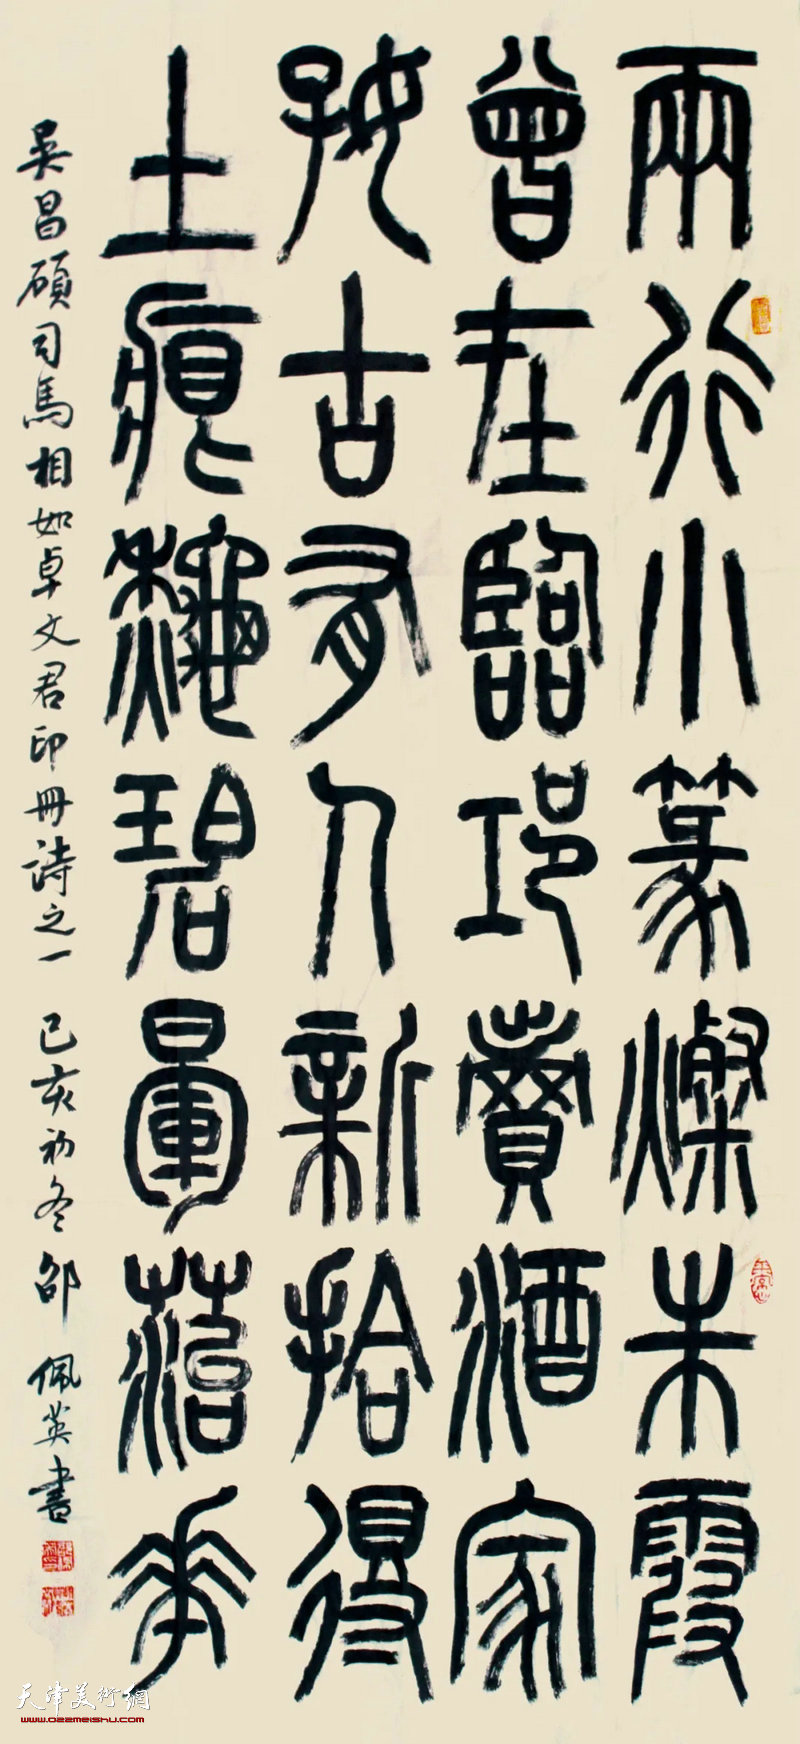 兩行小篆燦朱霞
曾在臨邛賣酒家
好古有人新拾得
土痕龝碧暈落華
吳昌碩司馬相如卓文君印冊詩之一 己亥初冬 邵佩英書
天津美術網
www.022meishu.com